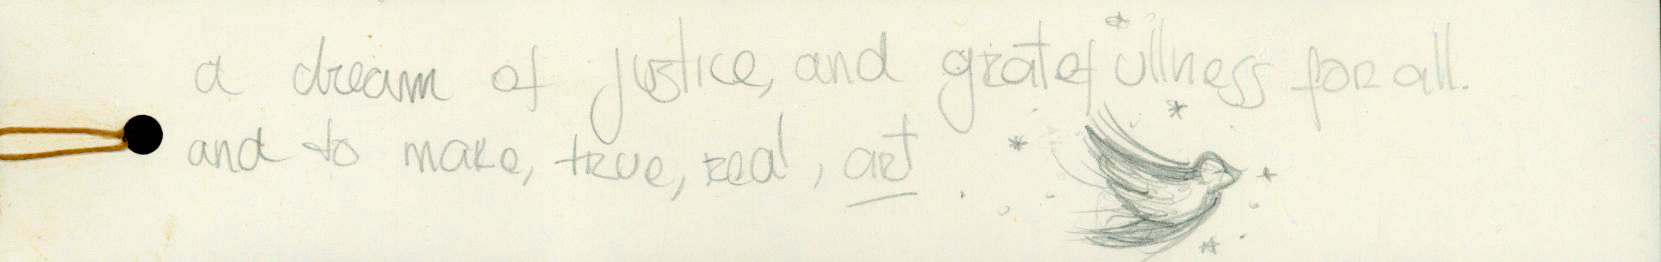 a dream of justice, and gratefullness for all.
and to make, true, real, art